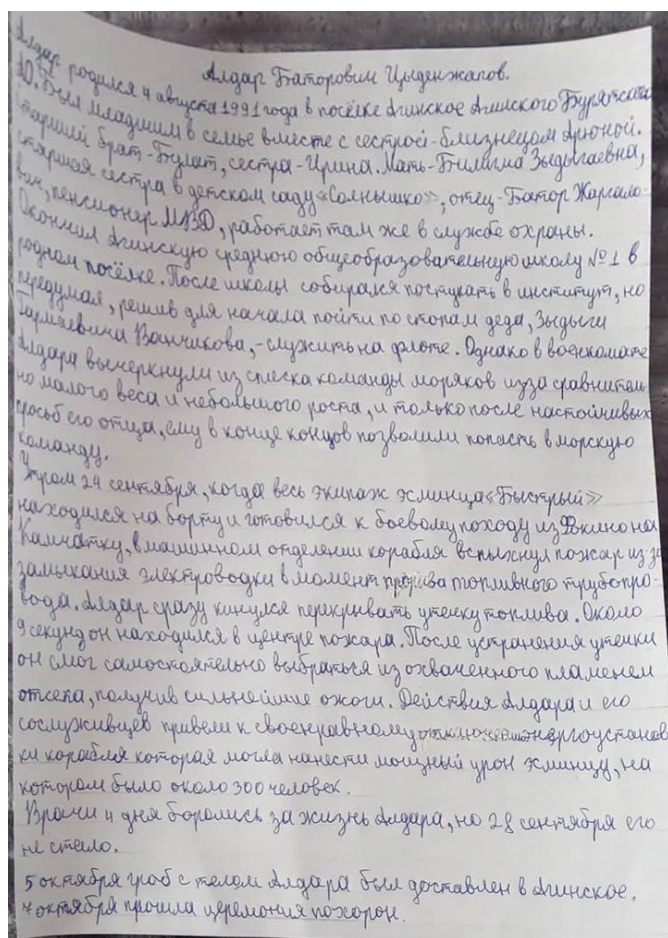 Алдар Баторович Цыденжапов.
Алдар родился 4 августа 1991 года в посёлке Агинское Агинского Бурятского
АО. Был младшим в семье вместе с сестрой-близнецом Арюной.
Старший брат-Булат, сестра-Ирина. Мать-Билигма Зыдыгаевна,
старшая сестра в детском саду «Солнышко», отец-Батор Жаргало-
вич, пенсионер МВД, работает там же в службе охраны.
Окончил Агинскую среднюю общеобразовательную школу №1 в
родном посёлке. После школы собирался поступать в институт, но
передумал, решив для начала пойти по стопам деда, Зыдыги
Гармаевича Ванчикова,- служить на флоте. Однако в военкомате
Алдара вычеркнули из списка команды моряков из за сравнитель
но малого веса и небольшого роста, и только после настойчивых
просьб его отца, ему в конце концов позволили попасть в морскую
команду.
Утром 24 сентября, когда весь экипаж эсминца «Быстрый»
находился на борту и готовился к боевому походу из Фокино на
Камчатку, в машинном отделении корабля вспыхнул пожар из-за
замыкания электроводки в момент прорыва топливного трубопро-
вода. Алдар сразу кинулся перекрывать утечку топлива. Около
9 секунд он находился в центре пожара. После устранения утечки
он смог самостоятельно выбраться из охваченного пламенем
отсека, получив сильнейшие ожоги. Действия Алдара и его
сослуживцев привели к своенравному энергоустанов
ки корабля которая могла нанести мощный урон эсминцу, на
котором было около 300 человек.
Врачи 4 дня боролись за жизнь Алдара, но 28 сентября его
не стало.
5 октября гроб с телом Алдара был доставлен в Агинское,
7 октября прошла церемония похорон.